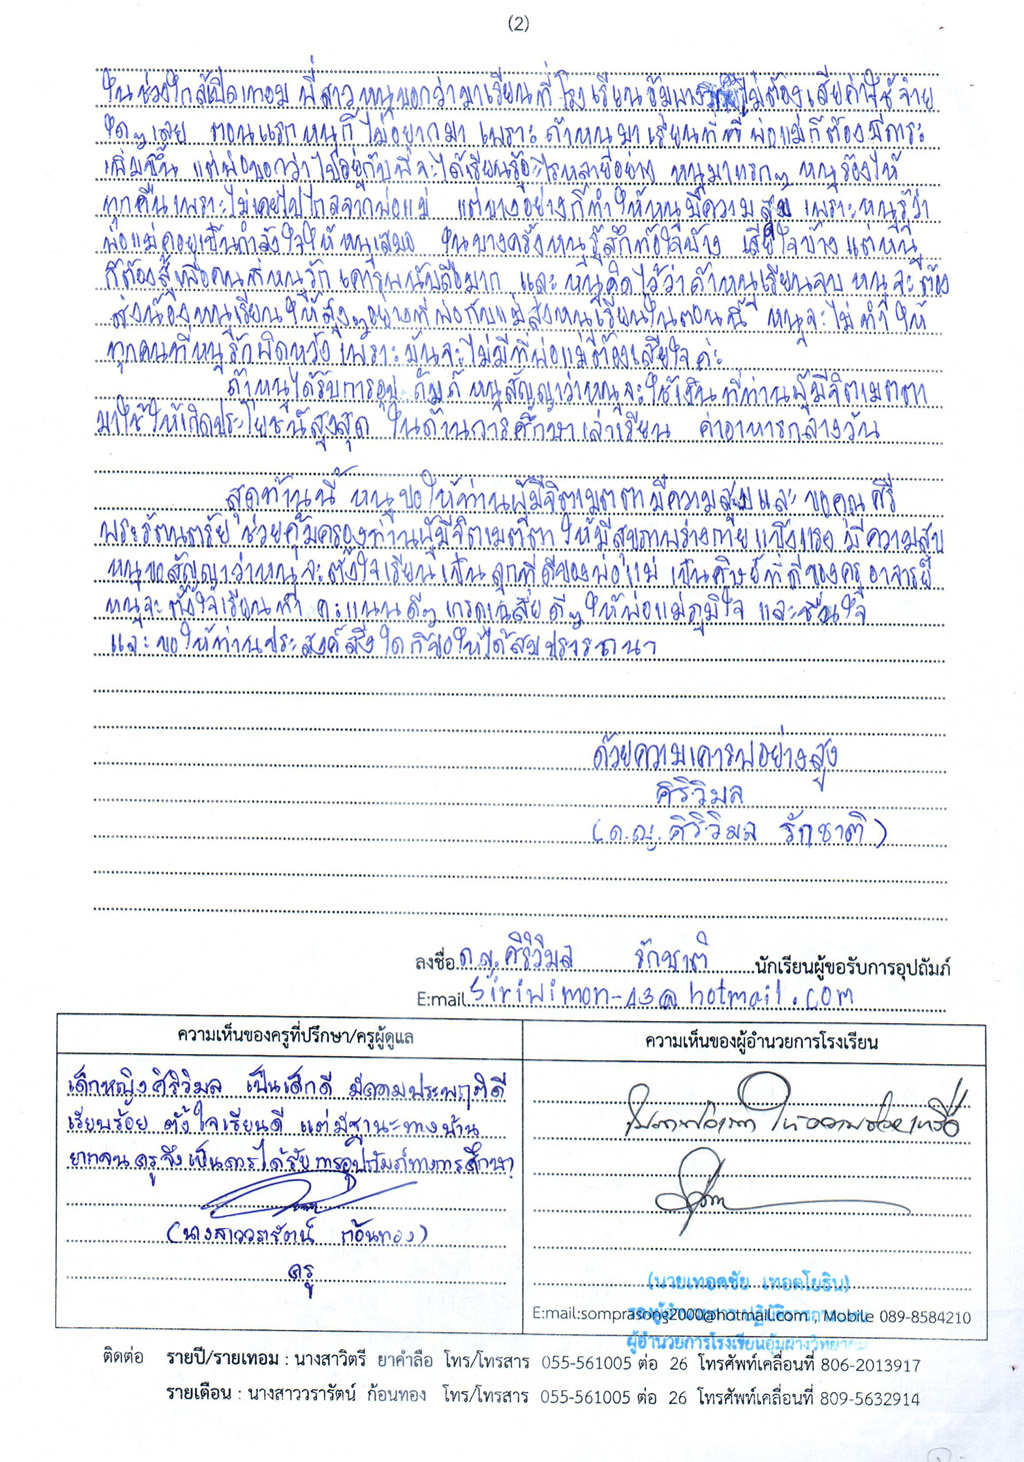 (2)
ในช่วงใกล้เปิดเทอม พี่สาวหนูบอกว่ามาเรียนที่โรงเรียนอุ้มผาง ไม่ต้องเสียค่าใช้จ่าย
ใดๆเลย ตอนแรกหนูก็ไม่อยากมา เพราะถ้าหนูมาเรียนที่นี่ พ่อแม่ก็ต้องมีภาระ
เพิ่มขึ้น แต่พ่อบอกว่าไปอยู่กับพี่จะได้เรียนรู้อะไรหลายอย่าง หนูมาแรกๆ หนูร้องไห้
ทุกคืนเพราะไม่เคยไปไกลจากพ่อแม่ แต่บางอย่างก็ทำให้หนูมีความสุข เพราะหนูรู้ว่า
พ่อแม่คอยเป็นกำลังใจให้หนูเสมอ ในบางครั้งหนูรู้สึกท้อใจบ้าง เสียใจบ้าง แต่หนู
ก็ต้องสู้เพื่อคนที่หนูรัก เคารพนับถือมาก และหนูคิดไว้ว่าถ้าหนูเรียนจบ หนูจะต้อง
ส่งน้องหนูเรียนให้สูงๆอย่างที่พ่อกับแม่ส่งหนูเรียนในตอนนี้ หนูจะไม่ทำให้
ทุกคนที่หนูรักผิดหวัง เพราะมันจะไม่มีที่พ่อแม่ต้องเสียใจค่ะ
ถ้าหนูได้รับการอุปถัมภ์ หนูสัญญาว่าหนูจะใช้เงินที่ท่านผู้มีจิตเมตตา
มาใช้ให้เกิดประโยชน์สูงสุด ในด้านการศึกษาเล่าเรียน ค่าอาหารกลางวัน
สุดท้ายนี้ หนูขอให้ท่านผู้มีจิตเมตตามีความสุขและ ขอคุณศรี
พระรัตนตรัย ช่วยคุ้มครองท่านผู้มีจิตเมตตา ให้มีสุขภาพร่างกายแข็งแรง มีความสุข
หนูขอสัญญาว่าหนูจะตั้งใจเรียนเป็นลูกที่ดีของพ่อแม่ เป็นศิษย์ที่ดีของครู อาจารย์
หนูจะตั้งใจเรียนทำ คะแนนดีๆ เกรดเฉลี่ยดีๆให้พ่อแม่ภูมิใจ และชื่นใจ
และขอให้ท่านประสงค์สิ่งใดก็ขอให้ได้สมปรารถนา
ด้วยความเคารพอย่างสูง
ศิริวิมล
(ด.ญ. ศิริวิมล รักชาติ)
ลงชื่อ ด.ญ. ศิริวิมล รักชาติ นักเรียนผู้ขอรับการอุปถัมภ์
E:mail Siriwimon-13@hotmail.com
ความเห็นของครูที่ปรึกษา/ครูผู้ดูแล
เด็กหญิงศิริวิมล เป็นเด็กดี มีความประพฤติดี
เรียบร้อย ตั้งใจเรียนดี แต่มีฐานะทางบ้าน
ยากจน ครูจึงเห็นควรได้รับการอุปถัมภ์ทางการศึกษา
(นางสาววรารัตน์ ก้อนทอง)
ครู
ความเห็นของผู้อำนวยการโรงเรียน
โปรดพิจารณาให้ความช่วยเหลือ
(นายเทอดชัย เทอดโยธิน)
E:mail:somprasong2000@hotmail.com , Mobile 089-8584210
ผู้อำนวยการโรงเรียนอุ้มผางวิทยาคม
ติดต่อ รายปี/รายเทอม : นางสาวิตรี ยาคำลือ โทร/โทรสาร 055-561005 ต่อ 26 โทรศัพท์เคลื่อนที่ 806-2013917
รายเดือน : นางสาววรารัตน์ ก้อนทอง โทร/โทรสาร 055-561005 ต่อ 26 โทรศัพท์เคลื่อนที่ 809-5632914